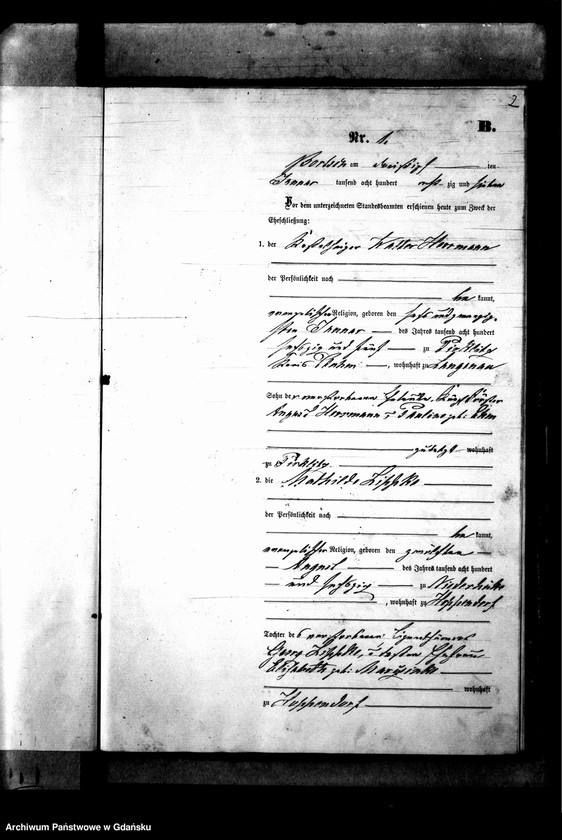 2
B.
Nr. 1.
am dreißigsten
Januar tausend acht hundert acht zig und sieben
Vor dem unterzeichneten Standesbeamten erschienen heute zum Zweck der
Eheschließung:
1. der Walter Herrmann
der Persönlichkeit nach
be kannt,
evangelischer Religion, geboren den sechsundzwanzig-
sten Januar des Jahres tausend acht hundert
sechszig und fünf zu
Kreis, wohnhaft zu Langenau
Sohn der verstorbenen
August Herrmann u Pauline geb.
zuletzt wohnhaft
zu
2. die Mathilde Lischke
der Persönlichkeit nach
be kannt,
evangelischer Religion, geboren den zwölften
August des Jahres tausend acht hundert
und sechszig zu
, wohnhaft zu Hoppendorf
Tochter des verstorbenen Eigenthümers
Georg Lischke, u dessen Ehefrau
Elisabeth geb.
wohnhaft
zu Hoppendorf
Archiwum Państwowe w Gdańsku